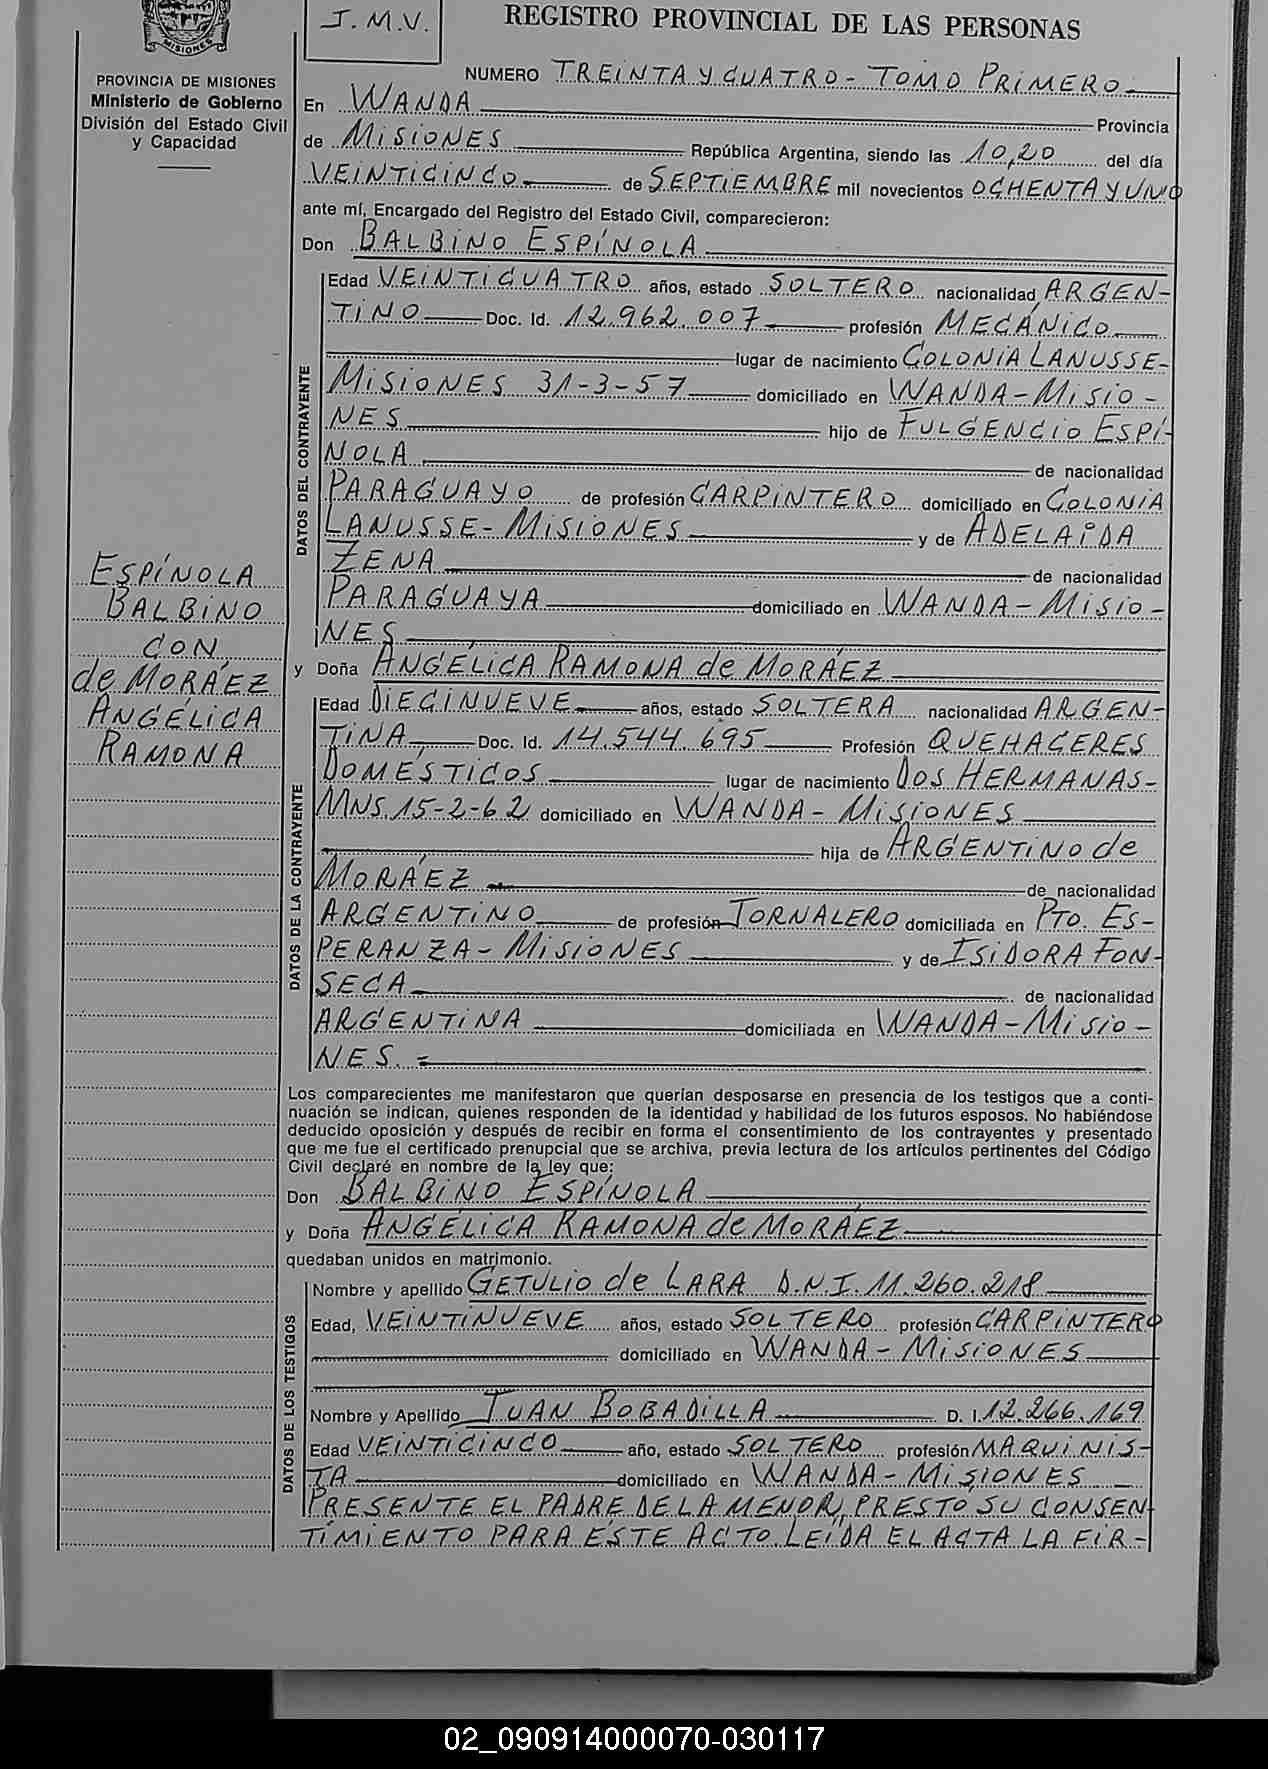 MISIONES
PROVINCIA DE MISIONES
Ministerio de Gobierno
División del Estado Civil
y Capacidad
ESPÍNOLA
BALBINO
CON
de MORÁEZ
ANGÉLICA
RAMONA
J.M.V.
REGISTRO PROVINCIAL DE LAS PERSONAS
NUMERO TREINTA Y CUATRO - TOMO PRIMERO
En WANDA Provincia
de MISIONES República Argentina, siendo las 10,20 del día
VEINTICINCO de SEPTIEMBRE mil novecientos OCHENTA Y UNO
ante mí, Encargado del Registro del Estado Civil, comparecieron:
Don BALBINO ESPÍNOLA
DATOS DEL CONTRAYENTE
Edad VEINTICUATRO años, estado SOLTERO nacionalidad ARGEN-
TINO Doc. Id. 12.962.007 profesión MECÁNICO
lugar de nacimiento COLONIA LANUSSE-
MISIONES 31-3-57 domiciliado en WANDA-MISIO-
NES hijo de FULGENCIO ESPÍ-
NOLA de nacionalidad
PARAGUAYO de profesión CARPINTERO domiciliado en COLONIA
LANUSSE-MISIONES y de ADELAIDA
ZENA de nacionalidad
PARAGUAYA domiciliado en WANDA-MISIO-
NES
y Doña ANGÉLICA RAMONA de MORÁEZ
DATOS DE LA CONTRAYENTE
Edad DIECINUEVE años, estado SOLTERA nacionalidad ARGEN-
TINA Doc. Id. 14.544.695 Profesión QUEHACERES
DOMÉSTICOS lugar de nacimiento DOS HERMANAS-
MNS. 15-2-62 domiciliado en WANDA-MISIONES
hija de ARGENTINO de
MORÁEZ de nacionalidad
ARGENTINO de profesión JORNALERO domiciliada en PTO. ES-
PERANZA-MISIONES y de ISIDORA FON-
SECA de nacionalidad
ARGENTINA domiciliada en WANDA-MISIO-
NES.=
Los comparecientes me manifestaron que querían desposarse en presencia de los testigos que a conti-
nuación se indican, quienes responden de la identidad y habilidad de los futuros esposos. No habiéndose
deducido oposición y después de recibir en forma el consentimiento de los contrayentes y presentado
que me fue el certificado prenupcial que se archiva, previa lectura de los artículos pertinentes del Código
Civil declaré en nombre de la ley que:
Don BALBINO ESPÍNOLA
y Doña ANGÉLICA RAMONA de MORÁEZ
quedaban unidos en matrimonio.
DATOS DE LOS TESTIGOS
Nombre y apellido GETULIO de LARA D.N.I. 11.260.218
Edad, VEINTINUEVE años, estado SOLTERO profesión CARPINTERO
domiciliado en WANDA-MISIONES
Nombre y Apellido JUAN BOBADILLA D. I. 12.266.169
Edad VEINTICINCO año, estado SOLTERO profesión MAQUINIS-
TA domiciliado en WANDA-MISIONES
PRESENTE EL PADRE DE LA MENOR, PRESTÓ SU CONSEN-
TIMIENTO PARA ÉSTE ACTO. LEÍDA EL ACTA LA FIR-
02_090914000070-030117